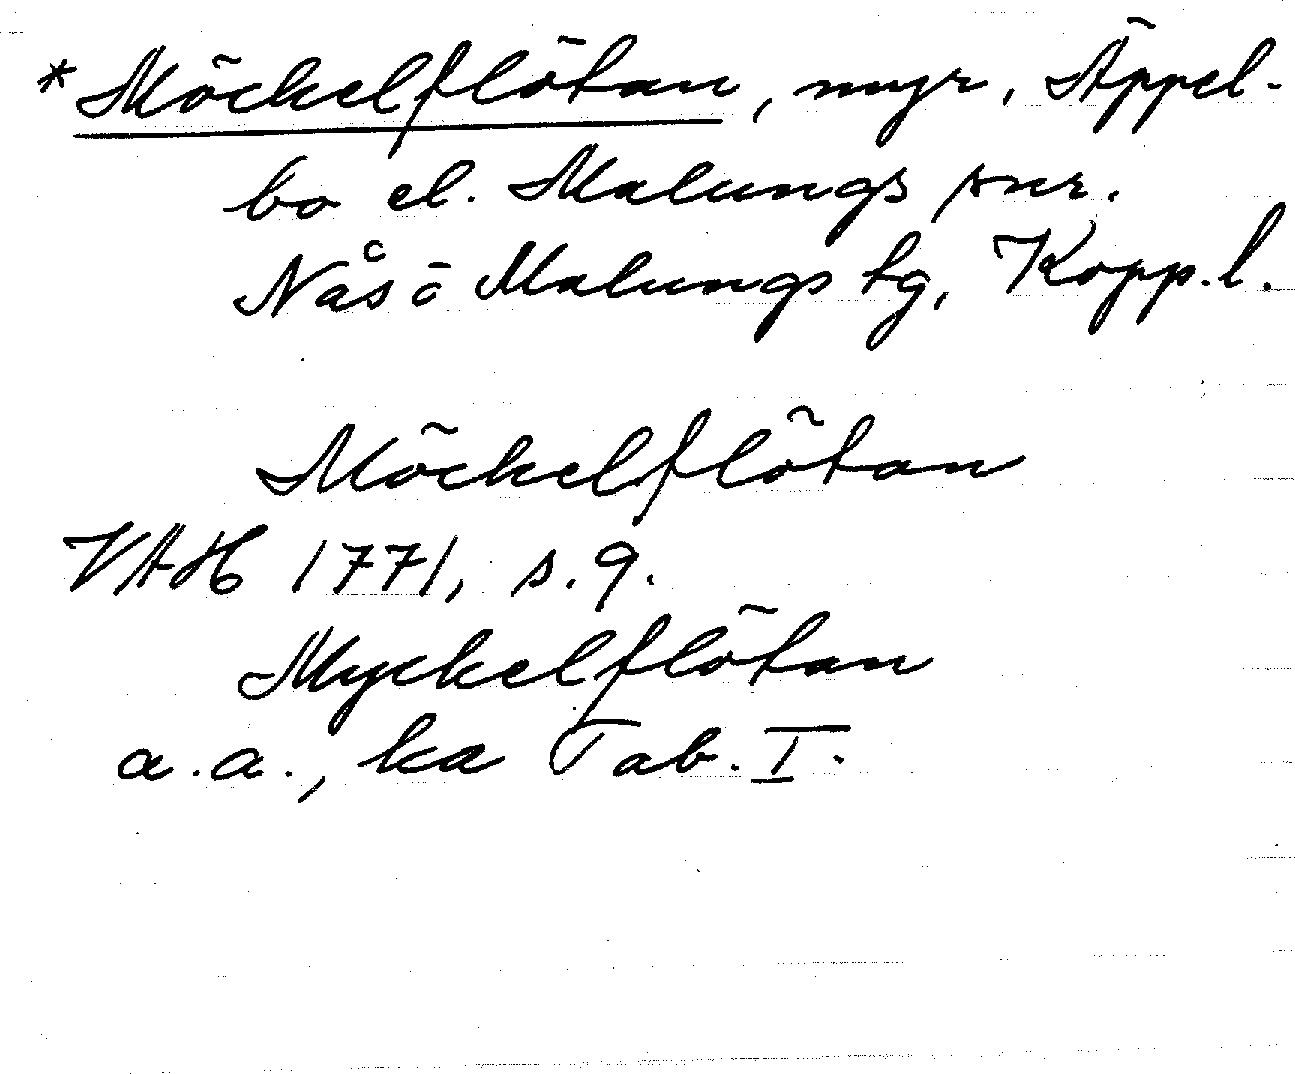 *Möckelflötan, myr, Äppel-
bo el. Malungs snr.
Nås o Malungs tg, Kopp.l.
Möckelflötan
VAH 1771, s.9.
Myckelflötan
a.a., ka Tab. I.